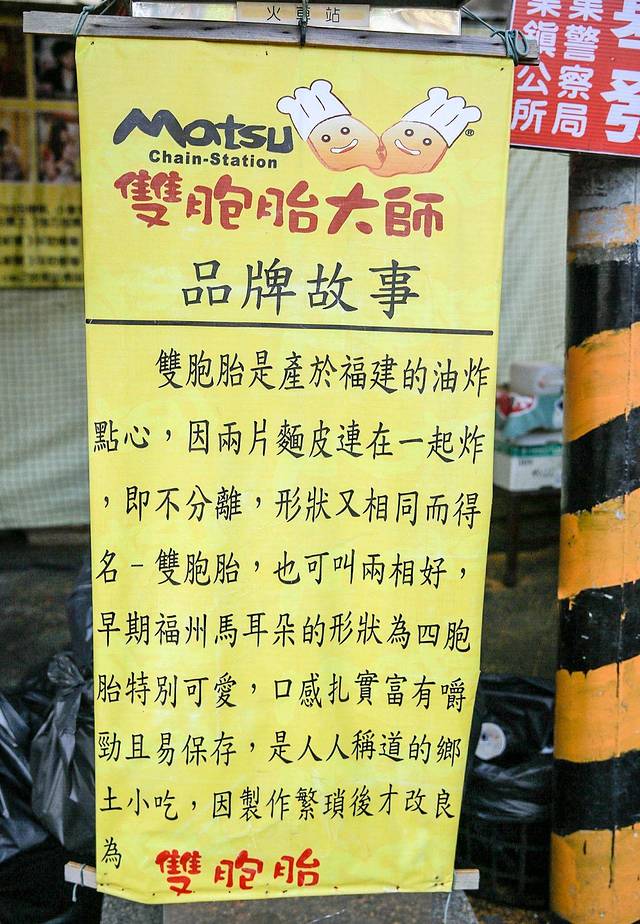 火車站
Matsu
Chain-Station
®
雙胞胎大師
品牌故事
雙胞胎是產於福建的油炸
點心，因兩片麵皮連在一起炸
，即不分離，形狀又相同而得
名–雙胞胎，也可叫兩相好，
早期福州馬耳朵的形狀為四胞
胎特別可愛，口感扎實富有嚼
勁且易保存，是人人稱道的鄉
土小吃，因製作繁瑣後才改良
為 雙胞胎
警察局
鎮公所